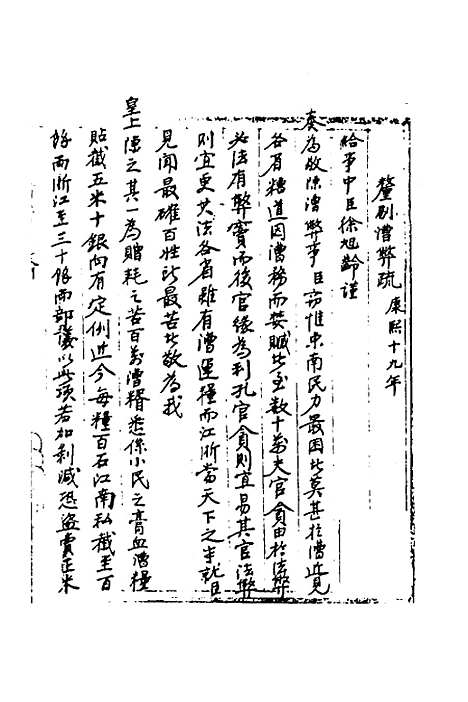 釐剔漕弊疏 康熙十九年
給事中臣徐旭齡謹
奏為敬陳漕弊事臣竊惟東南民力最困此莫甚於漕近見
各省糧道因漕務而婪贓此至數十萬夫官貪由於法弊
必法有弊竇而後官緣為利孔官貪則宜易其官法弊
則宜更其法各省雖有漕運糧而江浙當天下之半就臣
見聞最確百姓所最苦此敬為我
皇上陳之其一為贈耗之苦百萬漕糈悉係小民之膏血漕糧
貼截五米十銀向有定例近今每糧百石江南私截至百
餘兩浙江至三十餘兩部議以此項若如利減恐盜賣正米